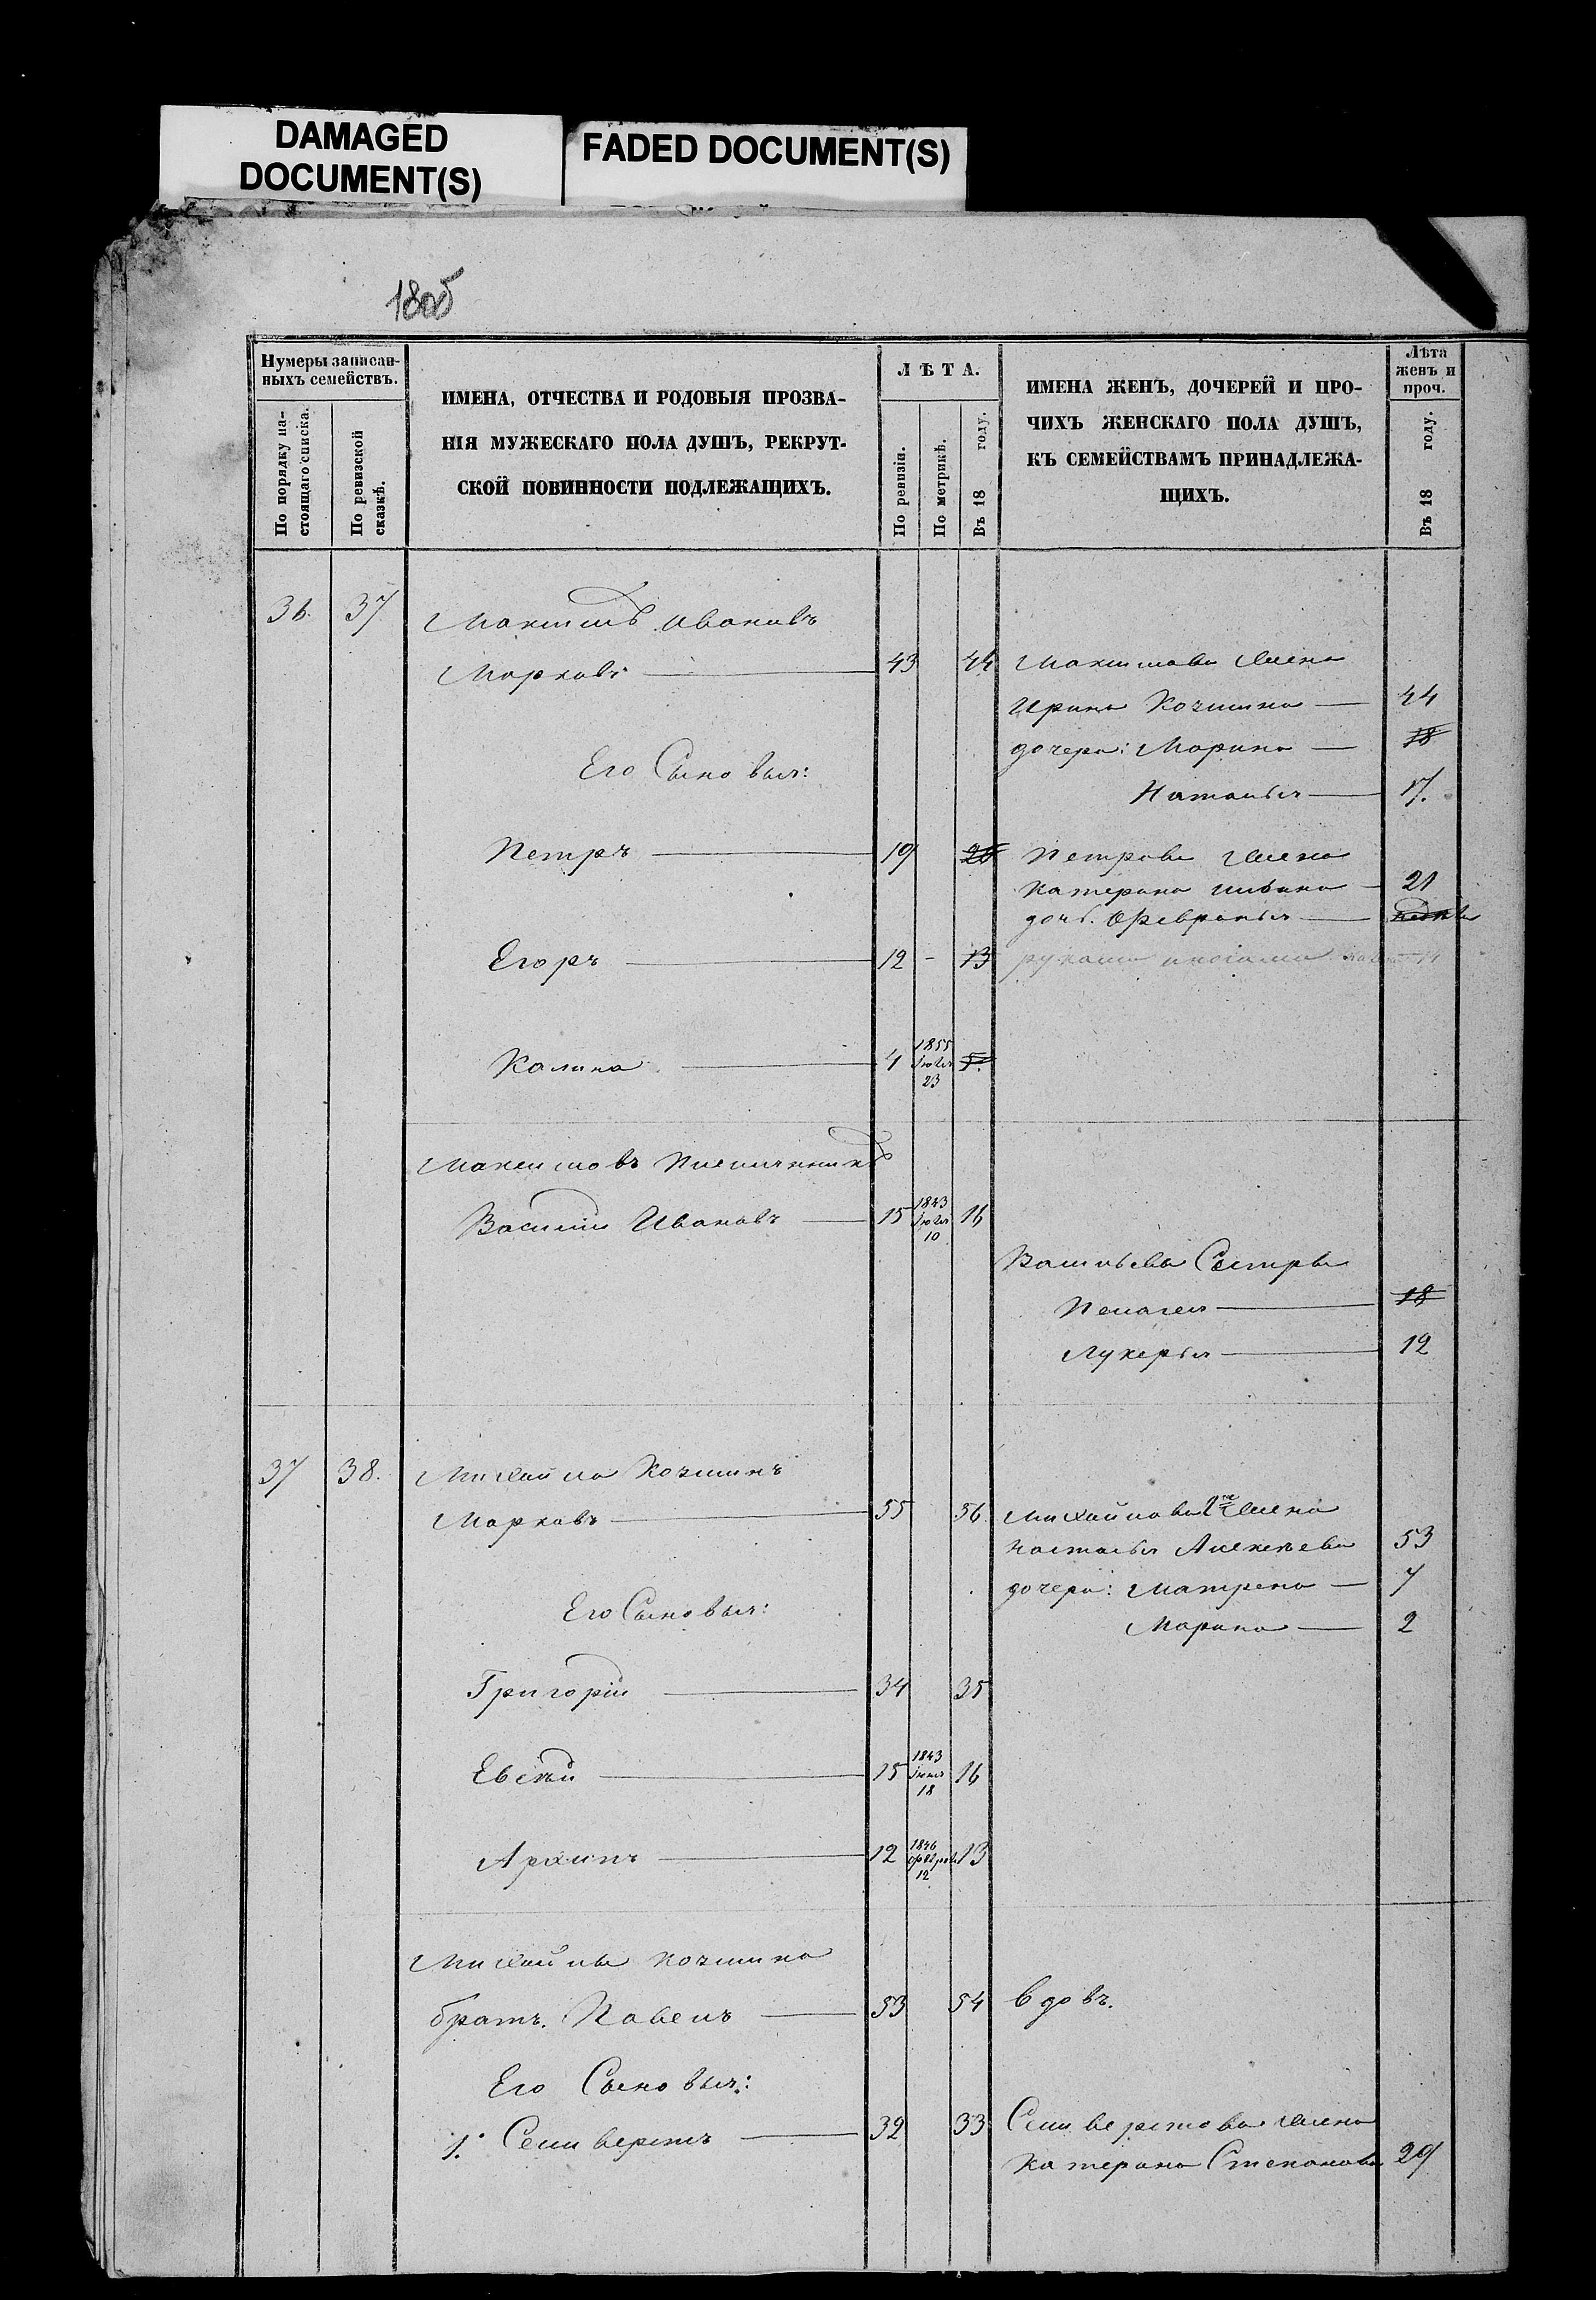 DAMAGED
DOCUMENT(S)
FADED DOCUMENT(S)
Нумеры записан-
ныхъ семействъ.
По порядку на-
стоящаго списка.
По ревизской
сказкѣ.
ИМЕНА, ОТЧЕСТВА И РОДОВЫЯ ПРОЗВА-
НІЯ МУЖЕСКАГО ПОЛА ДУШЪ, РЕКРУТ-
СКОЙ ПОВИННОСТИ ПОДЛЕЖАЩИХЪ.
ЛѢТА.
По ревизіи.
По метрикѣ.
Въ 18 году.
ИМЕНА ЖЕНЪ, ДОЧЕРЕЙ И ПРО-
ЧИХЪ ЖЕНСКАГО ПОЛА ДУШЪ,
КЪ СЕМЕЙСТВАМЪ ПРИНАДЛЕЖА-
ЩИХЪ.
Лѣта
женъ и
проч.
Въ 18 году.
36. 37 Максимъ Ивановъ
Марковъ 43 44 Максимова жена
Ирина Козмина 44
дочери: Марина 18
Его Сыновья:
Наталья 17.
Петръ 19 20 Петрова жена
Катерина 21
дочь Февронья
Егоръ 12 - 13
Калина 4 1855 Іюля 23 5.
Максимовъ Племянникъ
Василій Ивановъ 15 1843 Іюля 10 16
Васильевы Сестры
Пелагея 18
Лукерья 12
37 38. Михайла Козминъ
Марковъ 55 56 Михайлова жена
Настасья Алексѣева 53
дочери: Матрена 7
Его Сыновья:
Марина 2
Григорій 34 35
Евсѣй 15 1843 18 16
Архипъ 12 1846 12 13
Михайлы Козмина
братъ. Павелъ 53 54 вдовъ.
Его Сыновья:
1. Селиверстъ 32 33 Селиверстова жена
Катерина Степанова 29